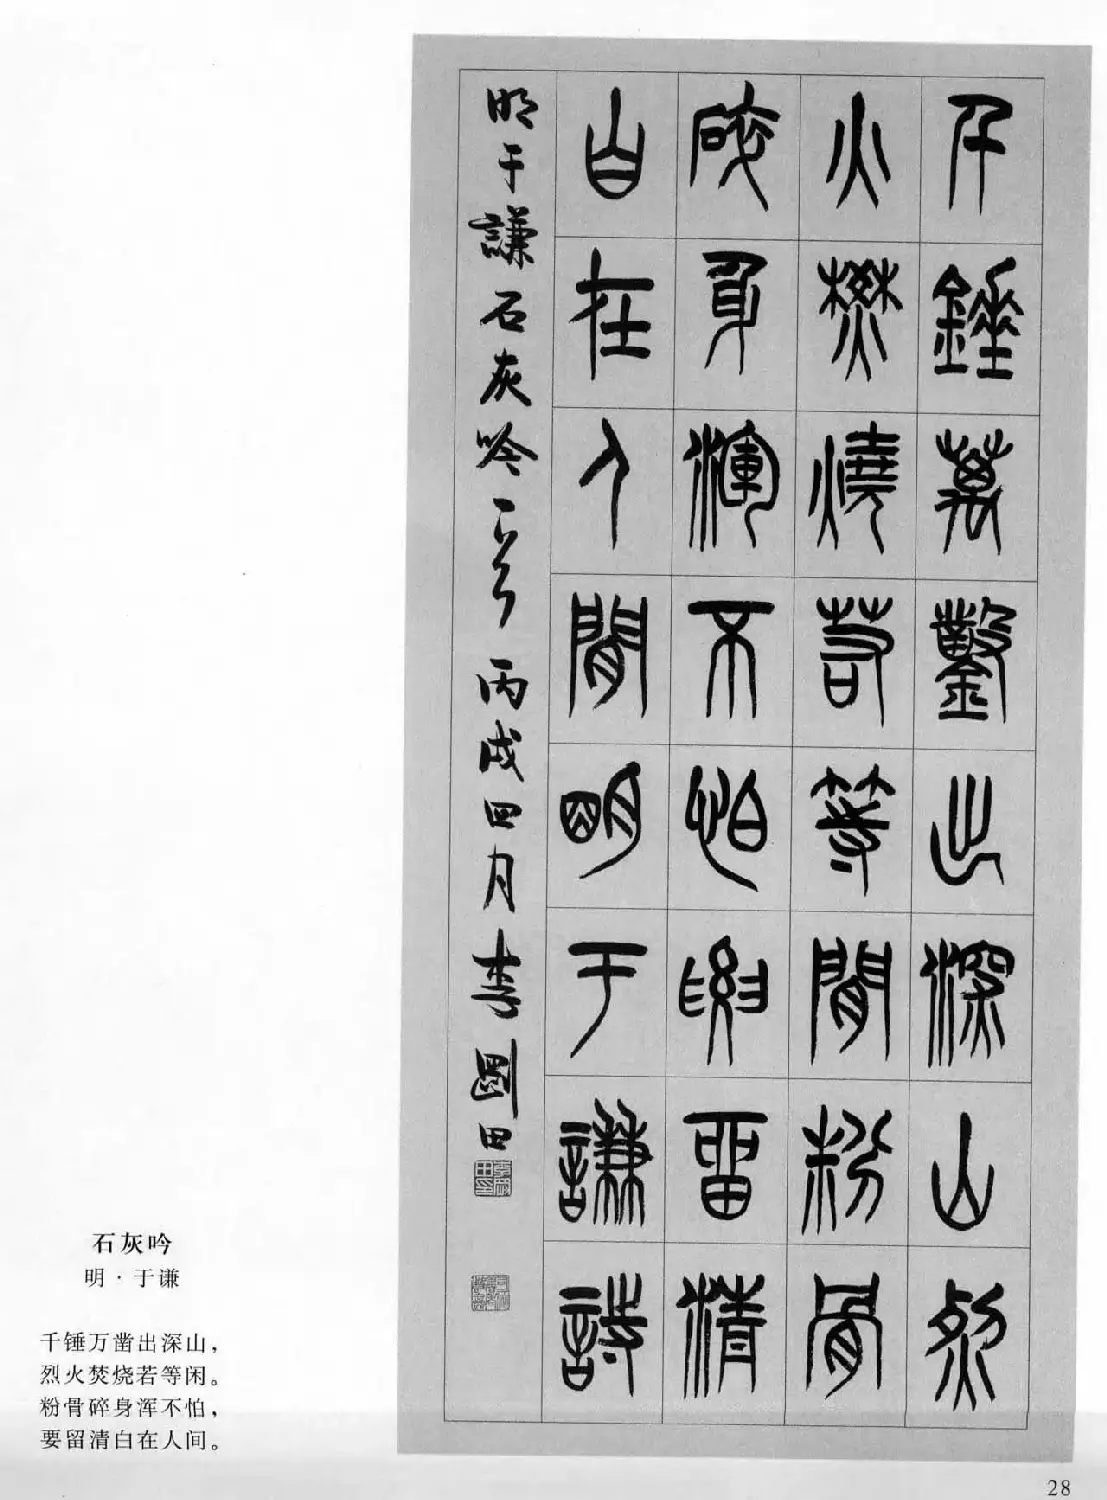 千錘萬鑿出深山烈
火焚燒若等閒粉骨
碎身渾不怕要留清
白在人間明于謙詩
明于謙石灰吟一首丙戌四月李剛田
石灰吟
明·于谦
千锤万凿出深山，
烈火焚烧若等闲。
粉骨碎身浑不怕，
要留清白在人间。
28